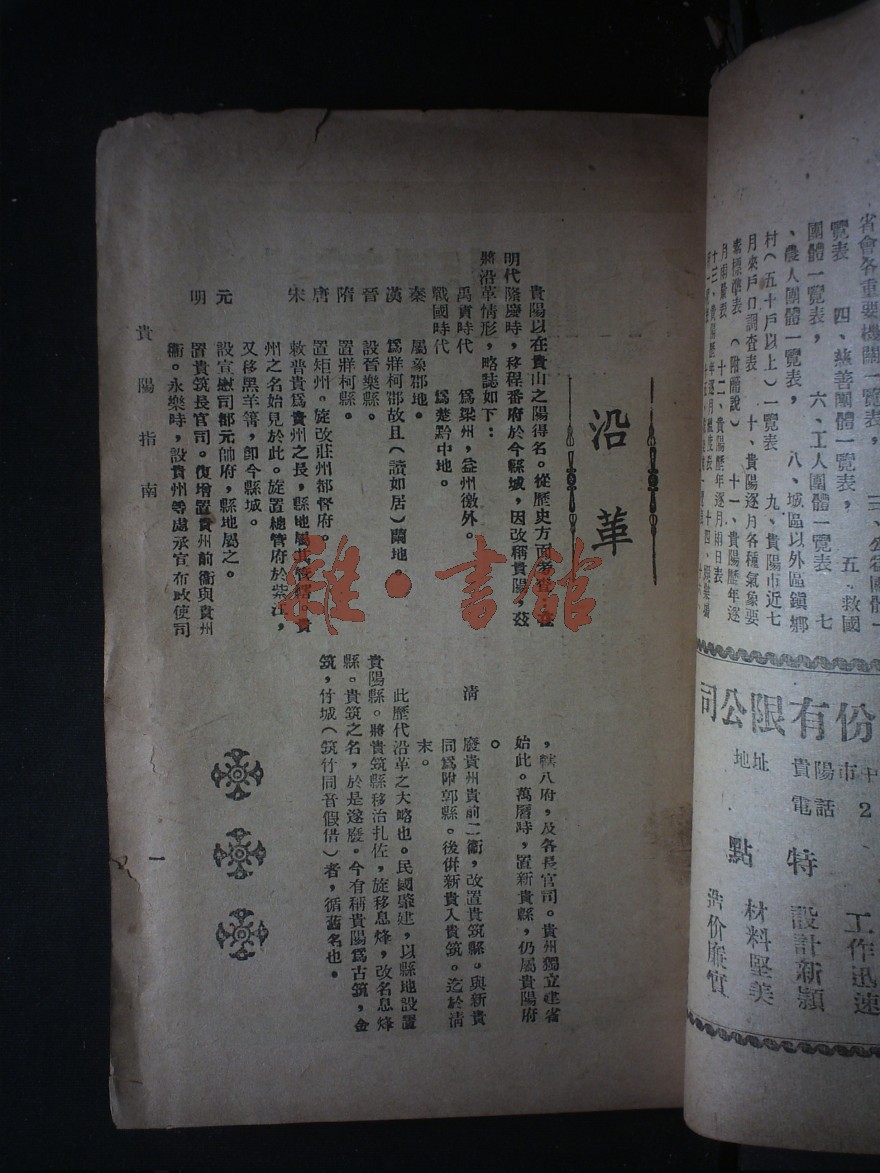 省會各重要機關一覽表，
覽表　四、慈善團體一覽表，　五、救國
團體一覽表，　六、工人團體一覽表　七
、農人團體一覽表，　八、城區以外區鎮鄉
村（五十戶以上）一覽表　九、貴陽市近七
月來戶口調查表　十、貴陽逐月各種氣象要
素標準表（附酷說）　十一、貴陽歷年逐
月雨量表　十二、貴陽歷年逐月雨日表
份有限公司
地址　貴陽市中
電話　2
特點
工作迅速
設計新頴
材料堅美
造价廉實
沿革
貴陽以在貴山之陽得名。從歷史方面考查，在
明代隆慶時，移程番府於今縣城，因改稱貴陽，茲
將沿革情形，略誌如下：
禹貢時代　爲梁州，益州徼外。
戰國時代　爲楚黔中地。
秦　屬象郡地。
漢　爲牂柯郡故且（讀如居）蘭地。
晉　設晉樂縣。
隋　置牂柯縣。
唐　置矩州。旋改莊州都督府。
宋　敕普貴爲貴州之長，縣地屬其管轄，貴
州之名始見於此。旋置總管府於紫江，
又移黑羊箐，卽今縣城。
元　設宣慰司都元帥府，縣地屬之。
明　置貴筑長官司。復增置貴州前衛與貴州
衛。永樂時，設貴州等處承宣布政使司
，轄八府，及各長官司。貴州獨立建省
始此。萬曆時，置新貴縣，仍屬貴陽府
。
清　廢貴州貴前二衛，改置貴筑縣。與新貴
同爲附郭縣。後併新貴入貴筑。迄於清
末。
此歷代沿革之大略也。民國肇建，以縣地設置
貴陽縣。將貴筑縣移治扎佐，旋移息烽，改名息烽
縣。貴筑之名，於是遂廢。今有稱貴陽爲古筑，金
筑，竹城（筑竹同音假借）者，循舊名也。
貴陽指南
一
雜·書館